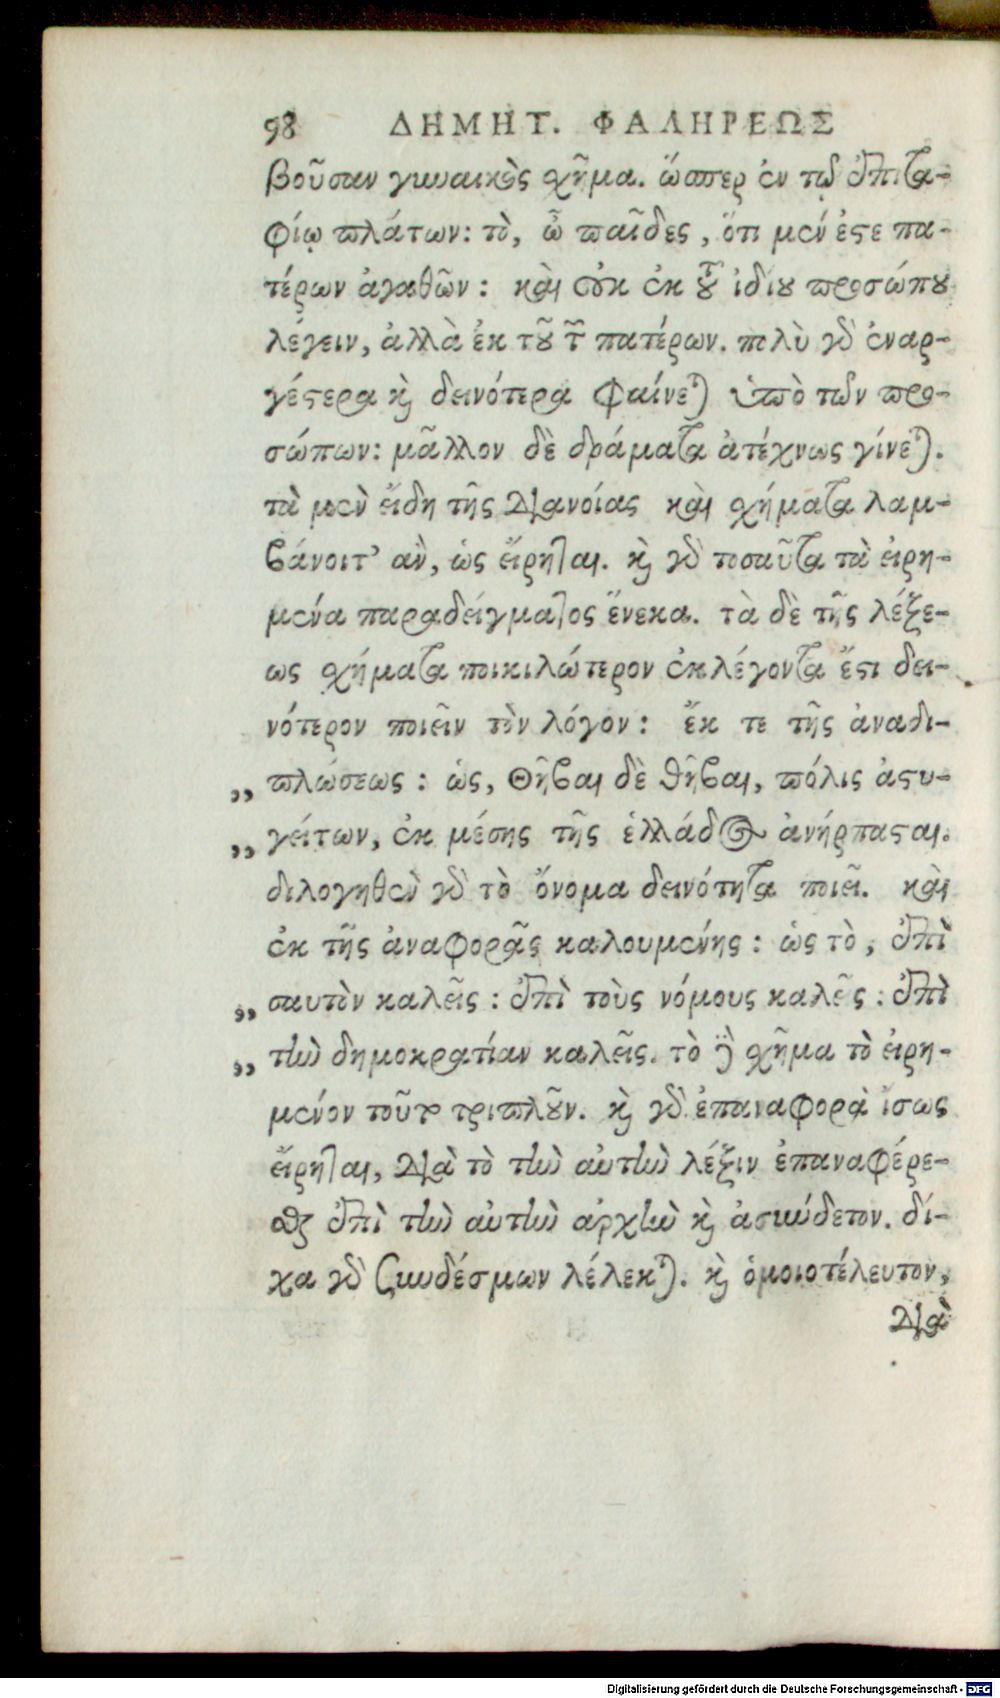 98 ΔΗΜΗΤ. ΦΑΛΗΡΕΩΣ
βοῦσαν γυναικὸς σχῆμα. ὥσπερ ἐν τῷ ἐπιτα-
φίῳ πλάτων: τὸ, ὦ παῖδες, ὅτι μὲν ἐστε πα-
τέρων ἀγαθῶν: καὶ οὐκ ἐκ τοῦ ἰδίου προσώπου
λέγειν, ἀλλὰ ἐκ τοῦ τῶν πατέρων. πολὺ γὰρ ἐναρ-
γέστερα καὶ δεινότερα φαίνεται ὑπὸ τῶν προ-
σώπων: μᾶλλον δὲ δράματα ἀτέχνως γίνεται.
τὰ μὲν εἴδη τῆς διανοίας καὶ σχήματα λαμ-
βάνοιτ' ἂν, ὡς εἴρηται. καὶ γὰρ τοσαῦτα τὰ εἰρη-
μένα παραδείγματος ἕνεκα. τὰ δὲ τῆς λέξε-
ως σχήματα ποικιλώτερον ἐκλέγοντα ἔστι δει-
νότερον ποιεῖν τὸν λόγον: ἔκ τε τῆς ἀναδι-
„ πλώσεως: ὡς, Θῆβαι δὲ θῆβαι, πόλις ἀστυ-
„ γείτων, ἐκ μέσης τῆς ἑλλάδος ἀνήρπασται.
διλογηθὲν γὰρ τὸ ὄνομα δεινότητα ποιεῖ. καὶ
ἐκ τῆς ἀναφορᾶς καλουμένης: ὡς τὸ, ἐπὶ
„ σαυτὸν καλεῖς: ἐπὶ τοὺς νόμους καλεῖς: ἐπὶ
„ τὴν δημοκρατίαν καλεῖς. τὸ δὲ σχῆμα τὸ εἰρη-
μένον τοῦτο τριπλοῦν. καὶ γὰρ ἐπαναφορὰ ἴσως
εἴρηται, διὰ τὸ τὴν αὐτὴν λέξιν ἐπαναφέρε-
σθαι ἐπὶ τὴν αὐτὴν ἀρχὴν καὶ ἀσύνδετον. δί-
χα γὰρ συνδέσμων λέλεκται. καὶ ὁμοιοτέλευτον,
διὰ
Digitalisierung gefördert durch die Deutsche Forschungsgemeinschaft - DFG